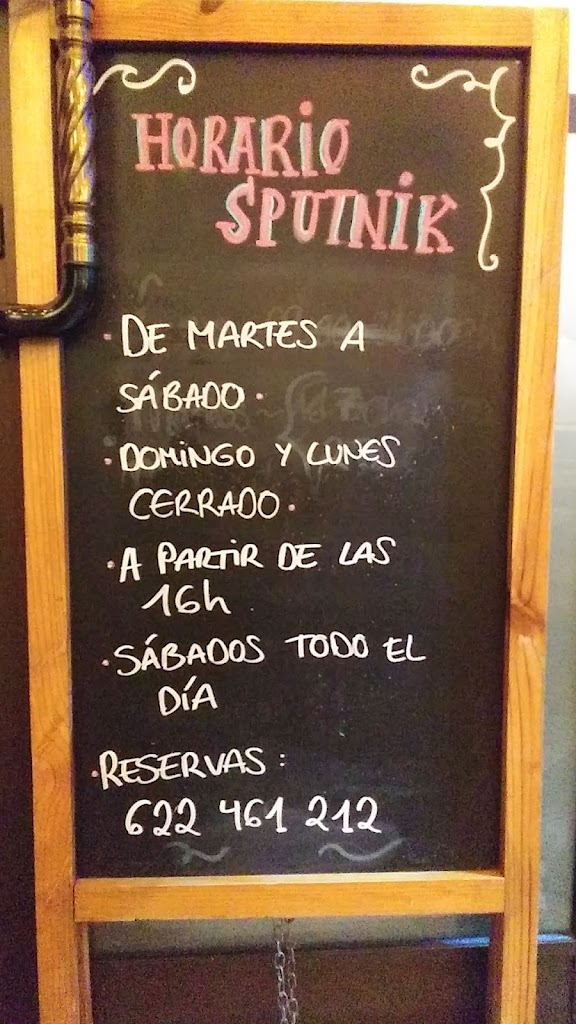 HORARIO
SPUTNIK
· DE MARTES A
SÁBADO ·
· DOMINGO Y LUNES
CERRADO ·
· A PARTIR DE LAS
16h
· SÁBADOS TODO EL
DÍA
· RESERVAS :
622 461 212